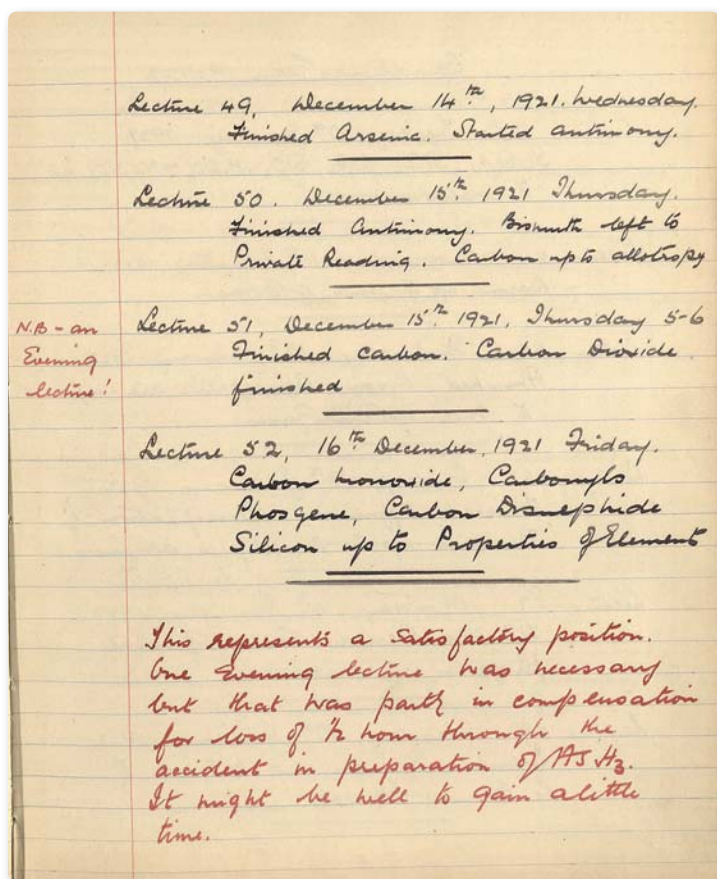 Lecture 49, December 14th, 1921. Wednesday.
Finished Arsenic. Started Antimony.
Lecture 50. December 15th 1921 Thursday.
Finished Antimony. Bismuth left to
Private Reading. Carbon up to allotropy
N.B - an
Evening
lecture!
Lecture 51, December 15th 1921, Thursday 5-6
Finished Carbon. Carbon Dioxide
finished
Lecture 52, 16th December, 1921 Friday.
Carbon Monoxide, Carbonyls
Phosgene, Carbon Disulphide
Silicon up to Properties of Element
This represents a satisfactory position.
One Evening lecture was necessary
but that was partly in compensation
for loss of ½ hour through the
accident in preparation of AsH₃.
It might be well to gain a little
time.